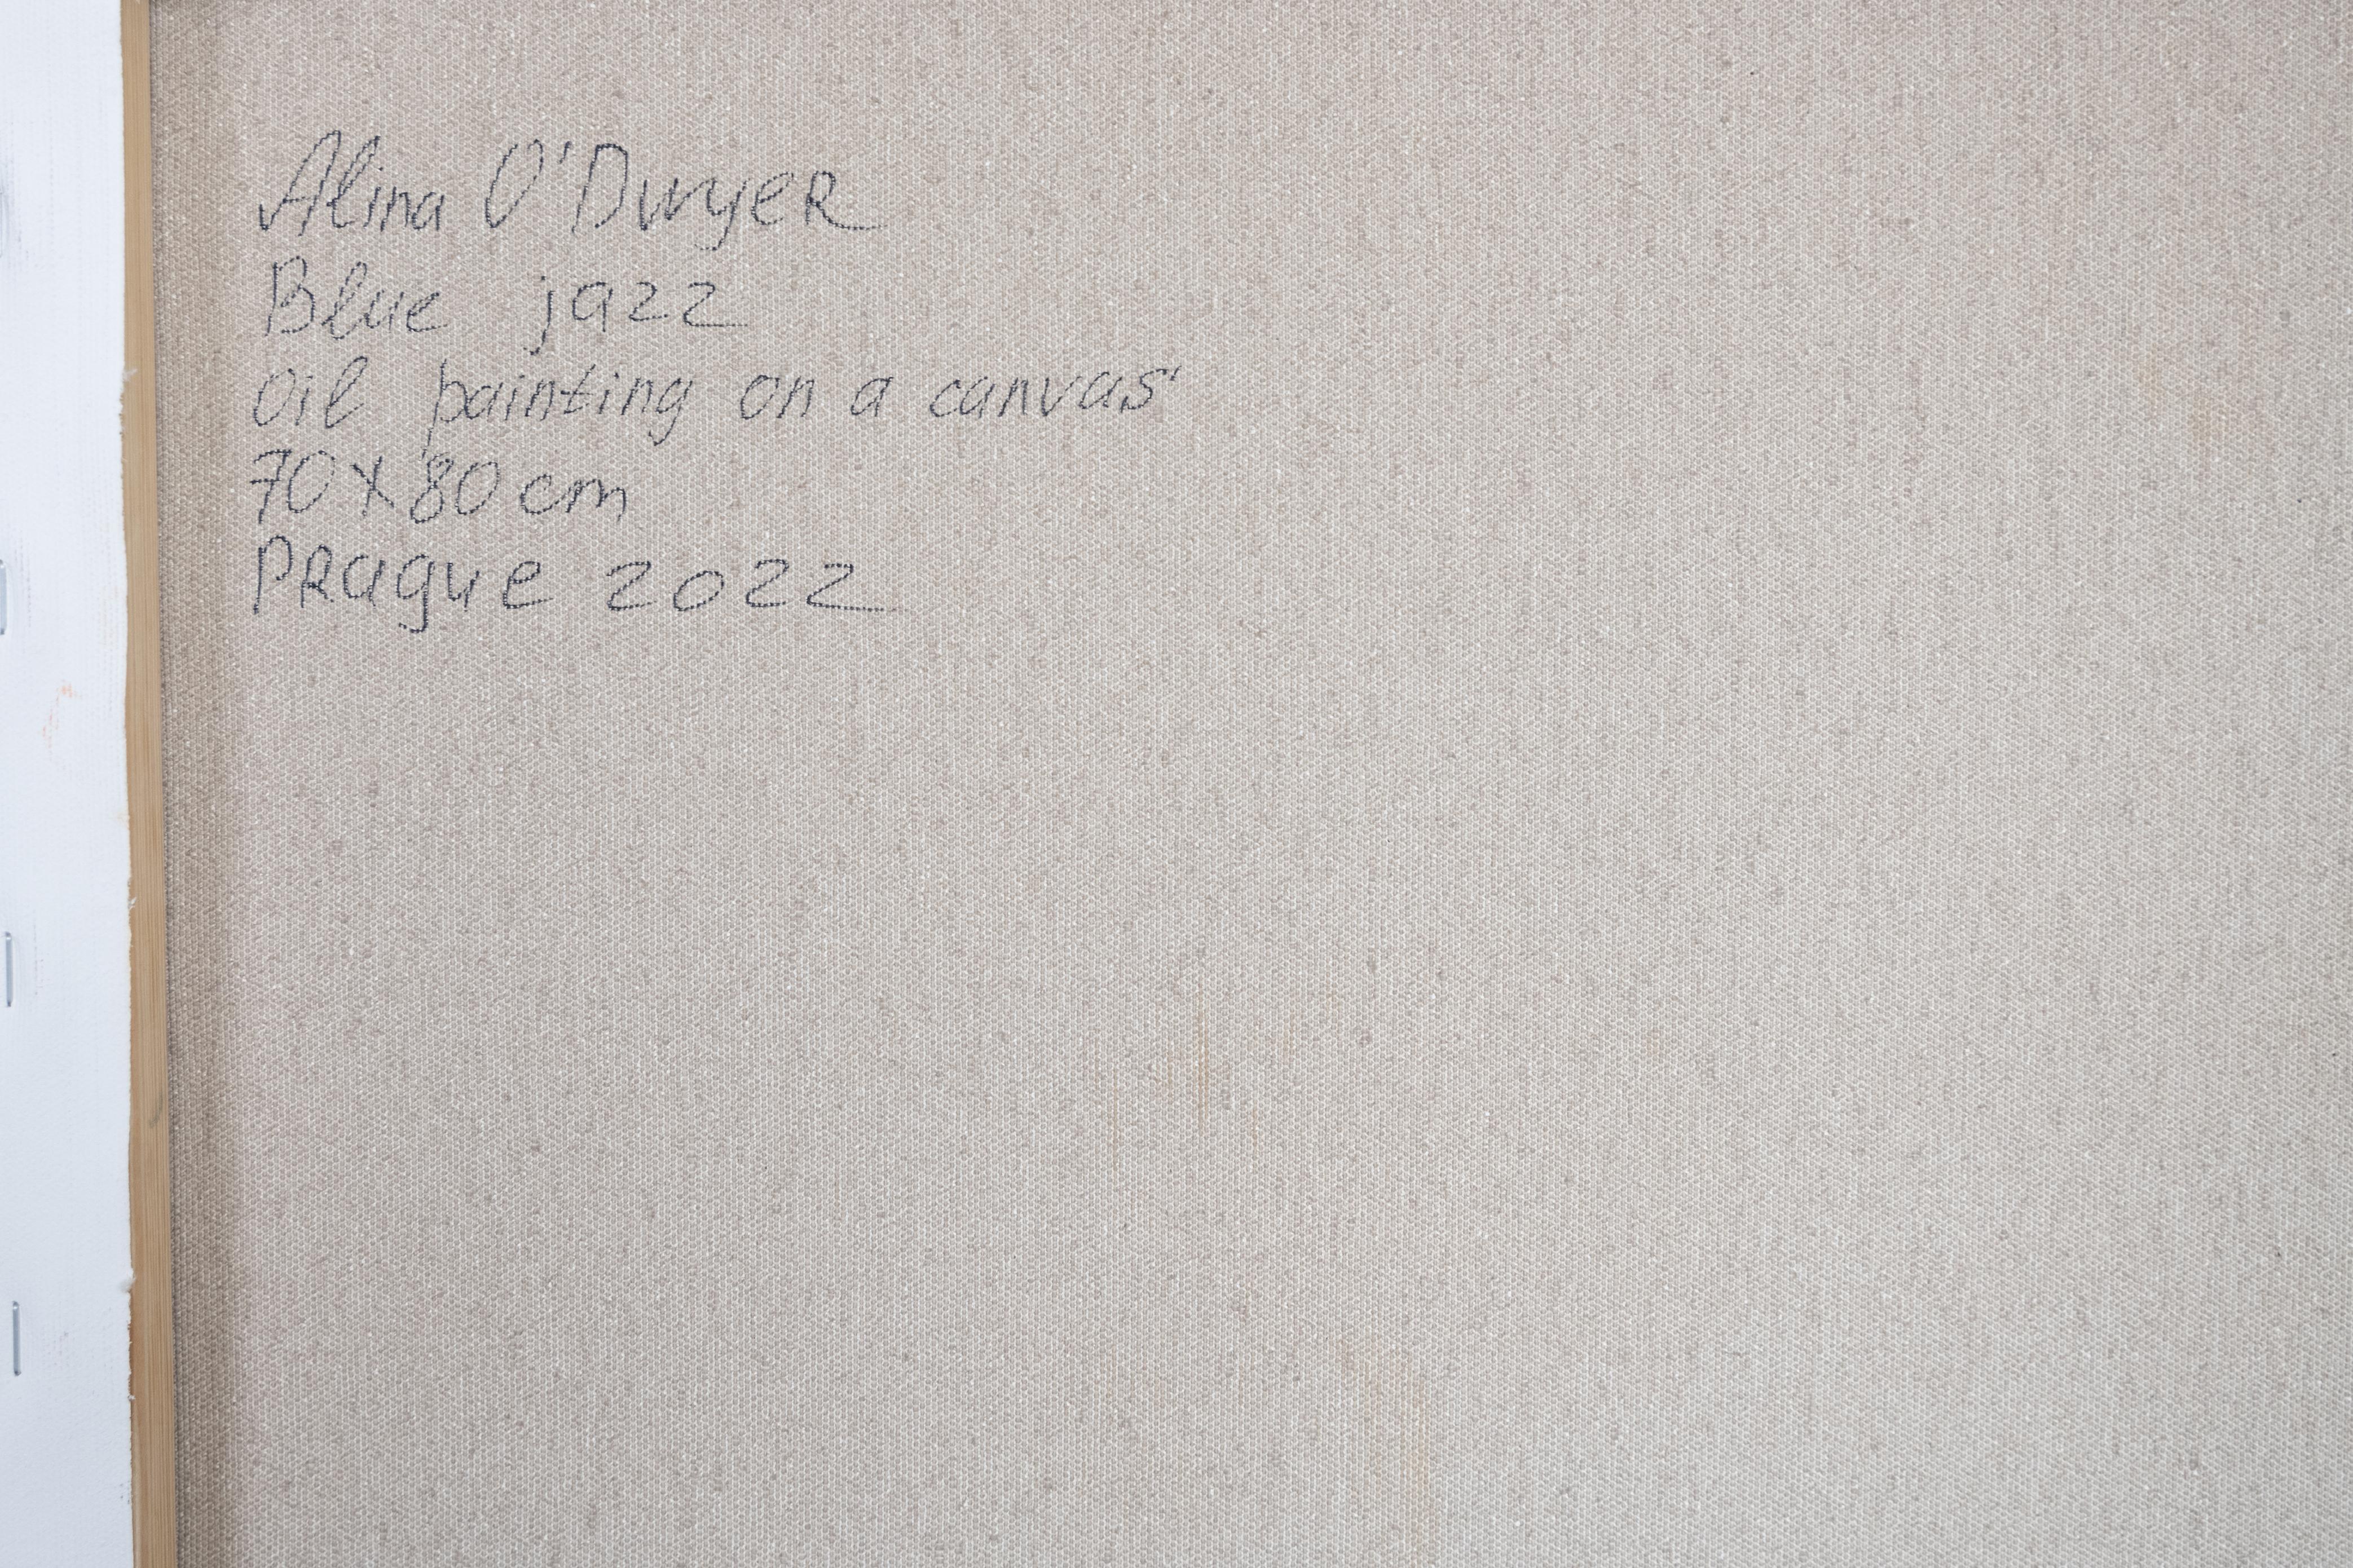 Alina O'Dwyer
Blue jazz
Oil painting on a canvas
70 x 80 cm
Prague 2022